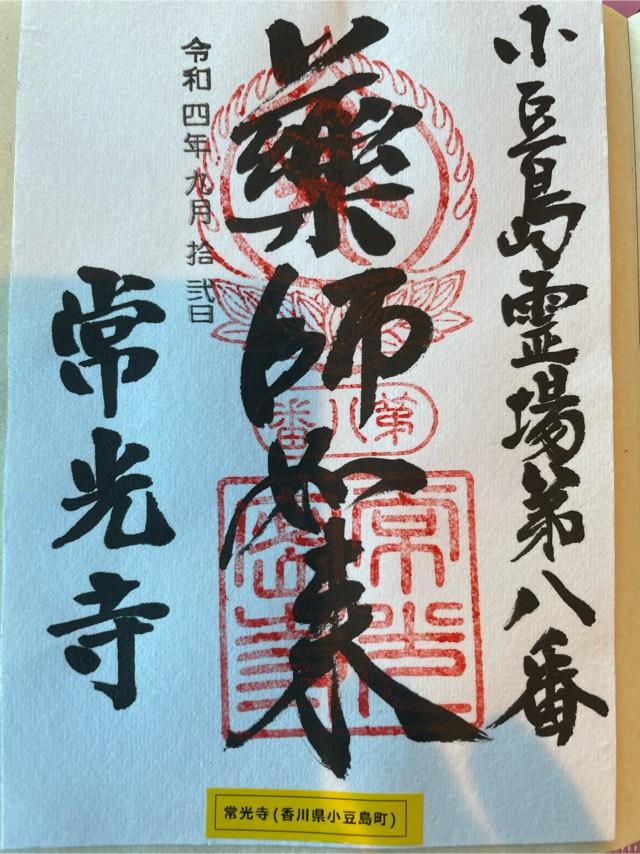 小豆島霊場第八番
藥師如来
第八番
令和四年九月拾弐日
常光寺
常光寺(香川県小豆島町)